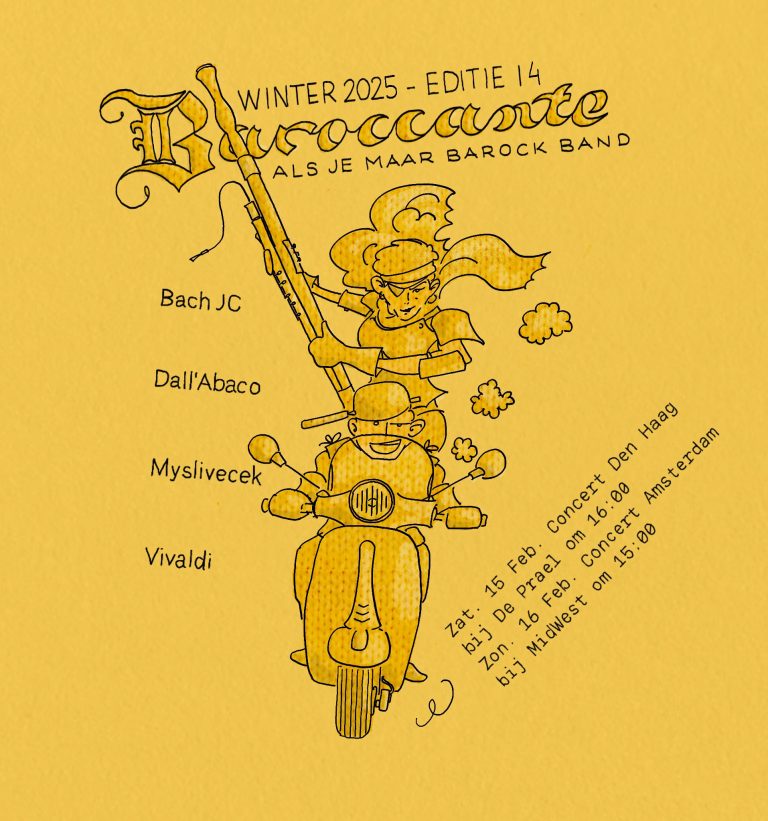 WINTER 2025 - EDITIE 14
Baroccante
ALS JE MAAR BAROCK BAND
Bach JC
Dall'Abaco
Myslivecek
Vivaldi
Zat. 15 Feb. Concert Den Haag
bij De Prael om 16:00
Zon. 16 Feb. Concert Amsterdam
bij MidWest om 15:00